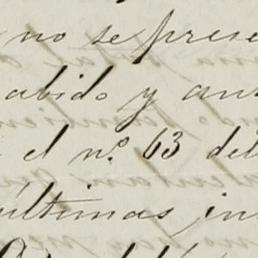 no se prese
abido y an
el nº. 63 del
últimas in